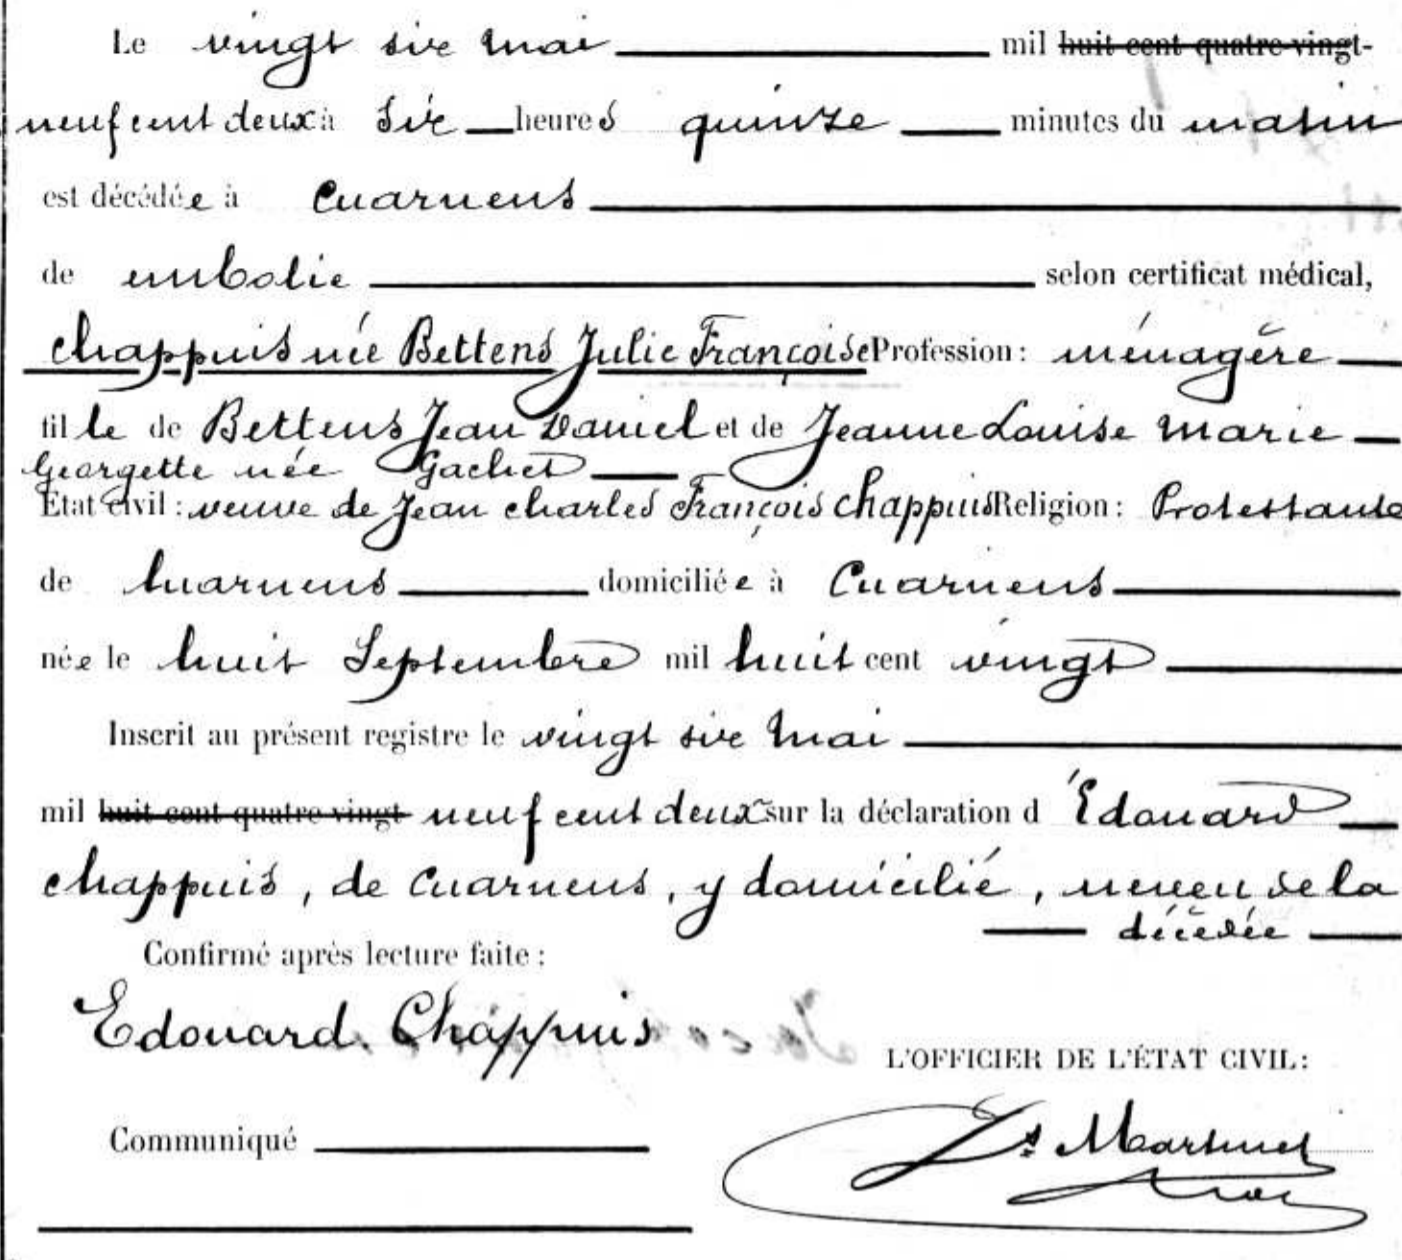 Le vingt six mai mil huit cent quatre-vingt-
neuf cent deux à six heures quinze minutes du matin
est décédée à Cuarnens
de embolie selon certificat médical,
Chappuis née Bettens Julie Françoise Profession : ménagère
fille de Bettens Jean Daniel et de Jeanne Louise Marie
Georgette née Gachet
Etat civil : veuve de Jean Charles François Chappuis Religion : Protestante
de Cuarnens domiciliée à Cuarnens
née le huit Septembre mil huit cent vingt
Inscrit au présent registre le vingt six mai
mil huit cent quatre-vingt neuf cent deux sur la déclaration d'Edouard
Chappuis, de Cuarnens, y domicilié, neveu de la
décédée
Confirmé après lecture faite :
Edouard Chappuis
L'OFFICIER DE L'ÉTAT CIVIL :
Communiqué
Martinet